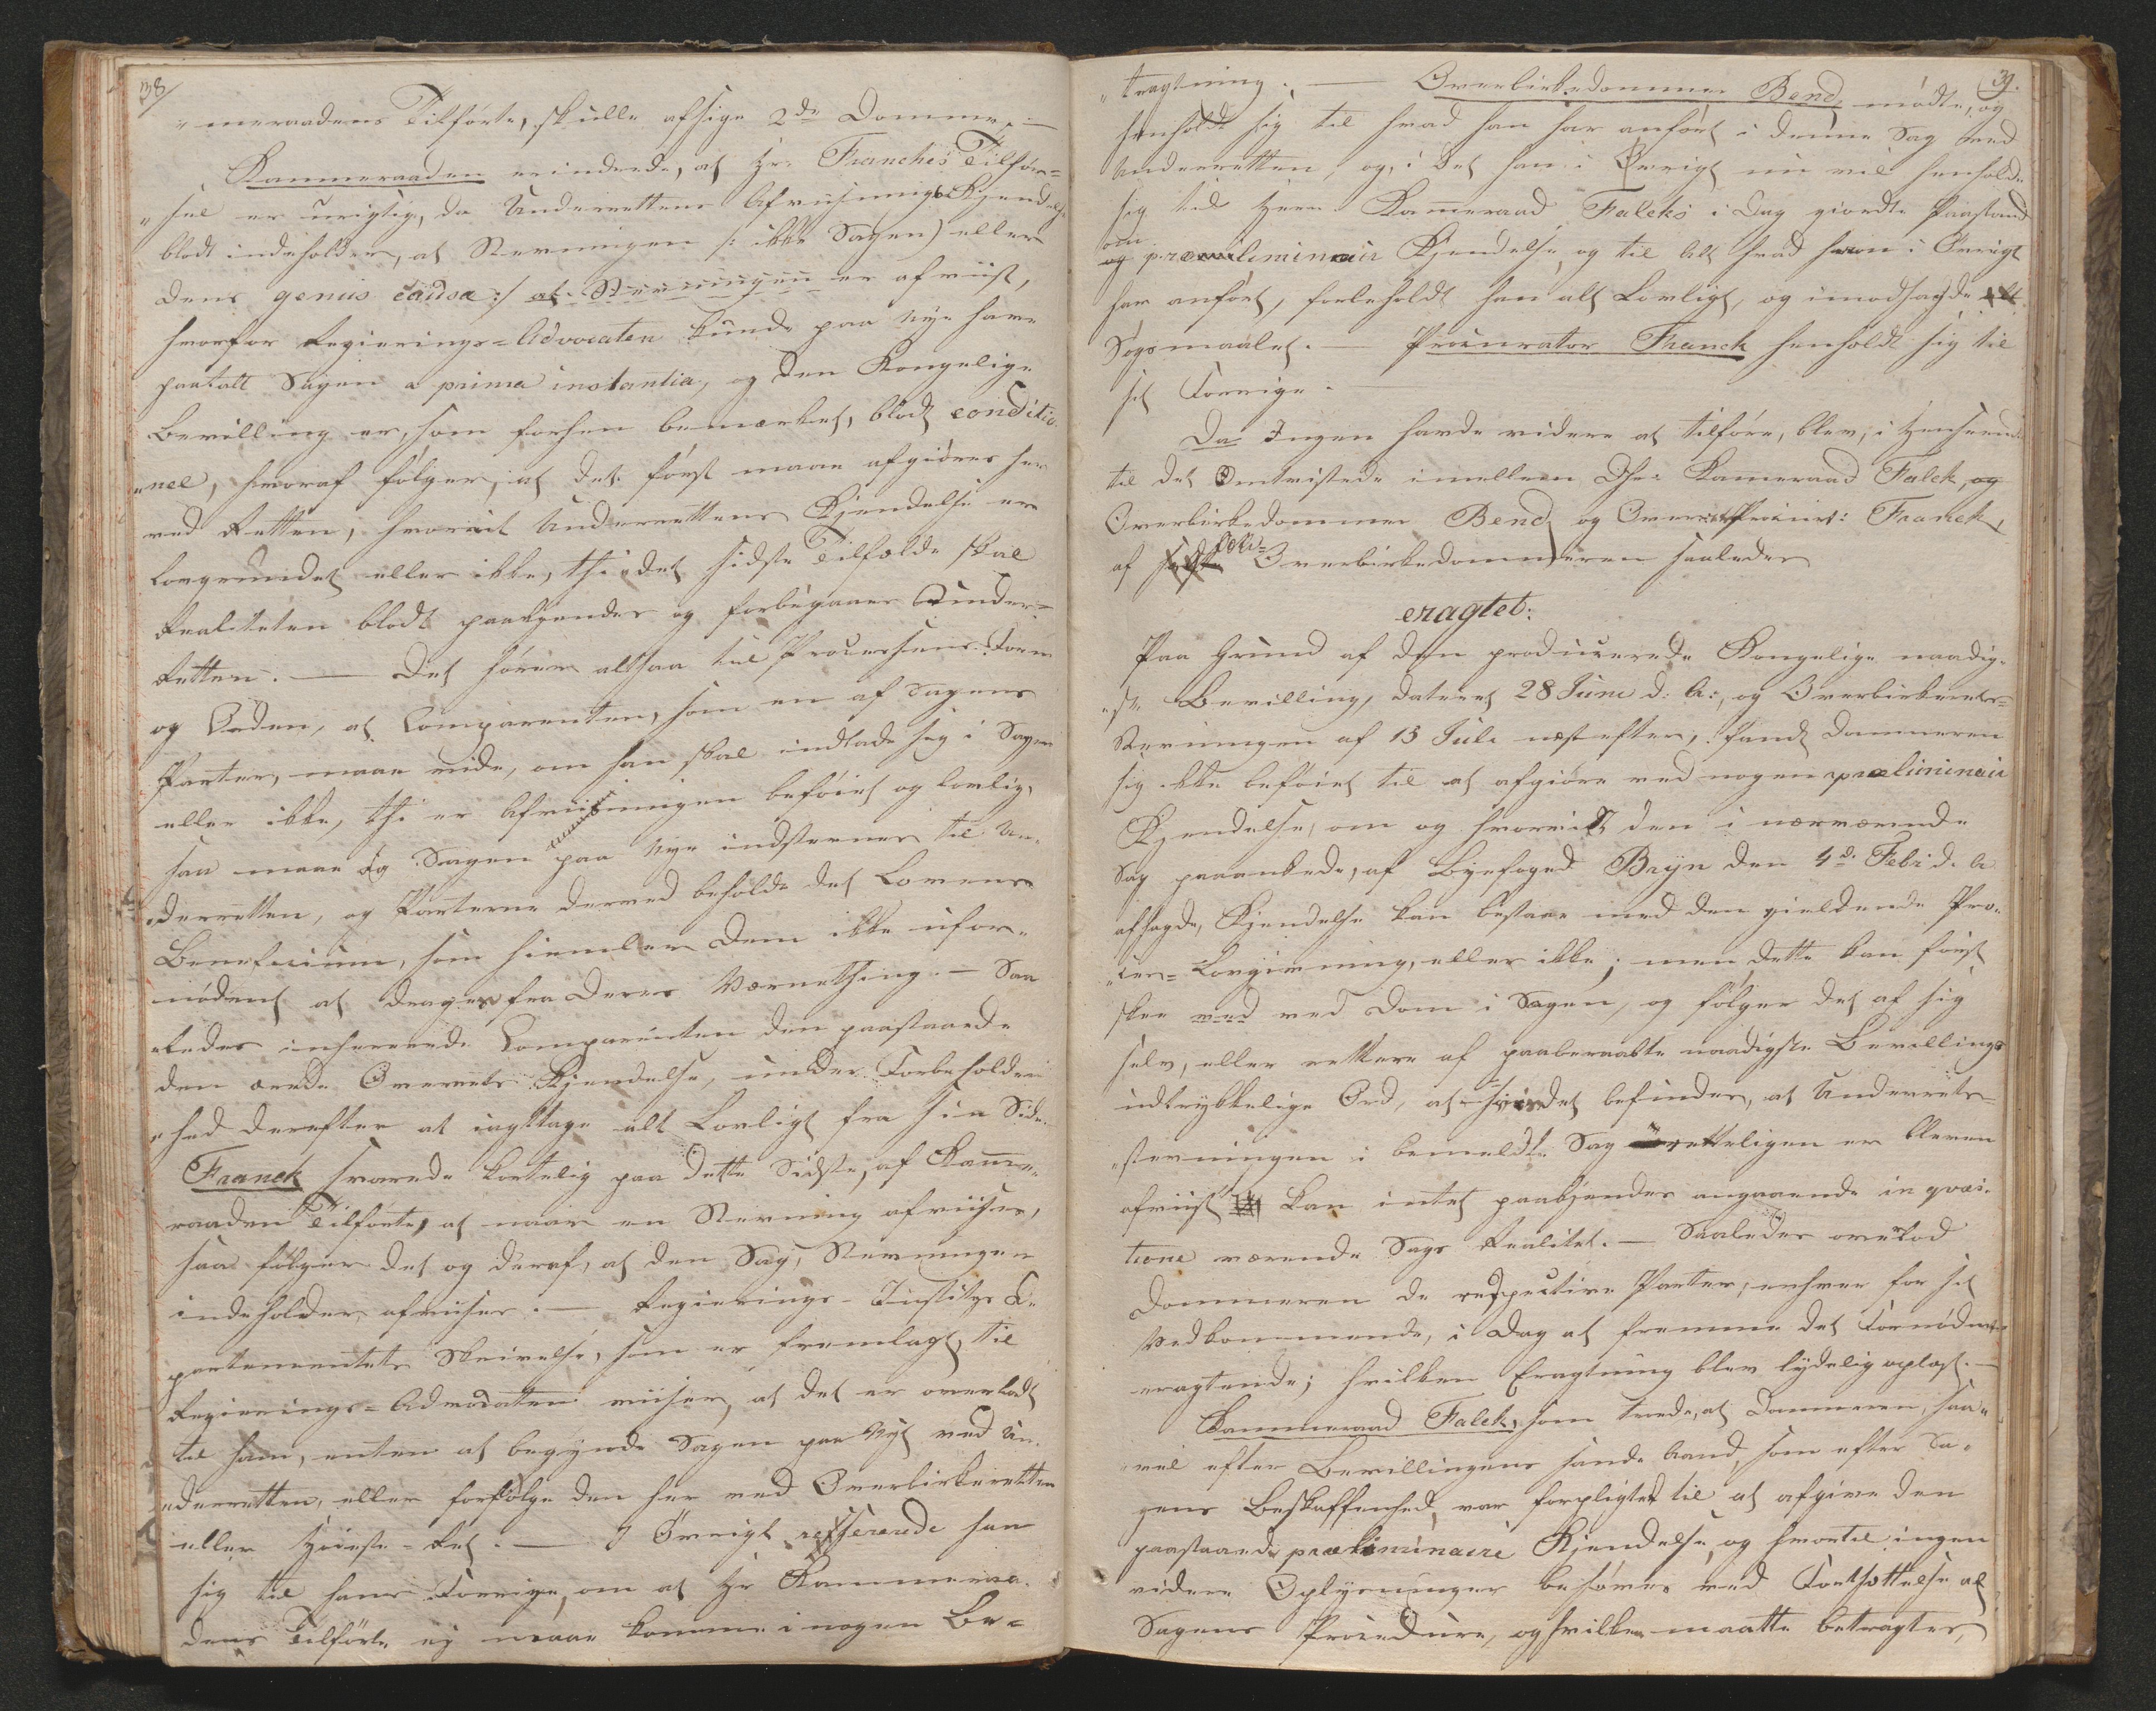 38/
"meraadens Tilførte, skulle afsige 2de Domme. —
Kammeraaden erindrede, at Hr. Francks Tilfør=
"sel er urigtig, da Underrettens Afviisnings Kjendelse
blodt indeholder, at Stevningen /: ikke Sagen) eller
dens genus causæ :/ at Stevningen er afviist,
hvorfor Regierings=Advocaten kunde paa nye have
paatalt Sagen a prima instantia, og den Kongelige
Bevilling er, som forhen bemærket, blodt conditio=
"nel, hvoraf følger, at det først maae afgiøres her
ved Retten, hvorvit Underrettens Kjendelse er
lovgrundet eller ikke, thi i det sidste Tilfælde skal
Realiteten blodt paakjendes og forbigaaes Under=
Retten. — Det hører altsaa til Processens Form
og Orden, at Comparenten, som en af Sagens
Parter, maae vide, om han skal indlade sig i Sagen
eller ikke, thi er Afviisningen beføiet og lovlig,
saa maae og Sagen paa nye indstevnes til Un=
"derretten, og Parterne derved beholde det Lovens
Beneficium, som hiemler dem ikke ufor=
nødent at drages fra deres Værnething. — Saa
"ledes inhererede Comparenten den paastaaede
den ærede Overrets Kjendelse, under Forbeholden=
"hed derefter at iagttage alt Lovligt fra sin Side.
Franck svarede kortelig paa dette Sidste, af Kamme=
raaden Tilførte, at naar en Stevning afviises,
saa følger det og deraf, at den Sag, Stevningen
indeholder, afviises. — Regierings=Justits De=
partementets Skrivelse, som er fremlagt, til
Regierings=Advocaten viiser, at det er overladt
til ham, enten at begynde Sagen paa Nyt ved Un=
"derretten, eller forfølge den her ved Overbirkeretten
eller Høieste=Ret. — I Øvrigt refererede han
sig til hans Forrige, om at Hr Kammeraa=
dens Tilførte ej maae komme i nogen Be=
39.
"tragtning. — Overbirkedommer Bend mødte, og
henholdt sig til hvad han har anført i denne Sag ved
Underretten, og, i det han i Øvrigt nu vil henholde
sig til Herr Kammeraad Falcks i Dag giordte Paastand
om
og præliminair Kjendelse, og til Alt hvad han i Øvrigt
har anført, forbeholdt han alt Lovligt, og imodsagde alt
Søgsmaalet. — Procurator Franck henholdt sig til
sit Forrige.
Da Ingen havde videre at tilføre, blev, i Henseende
til det Omtvistede imellem Dhrr Kammeraad Falck, og
Overbirkedommer Bend og Overrets Procur: Franck,
af Overbirkedommeren saaledes
eragtet:
Paa Grund af den producerede Kongelige naadig=
"ste Bevilling, dateret 28 Juni d: A:, og Overbirkerets=
Stevningen af 15 Juli næstefter, fandt Dommeren
sig ikke beføiet til at afgiøre ved nogen præliminair
Kjendelse, om og hvorvidt den i nærværende
Sag paaankede, af Byefoged Bryn den 4de Febr. d. A
afsagde, Kjendelse kan bestaae med den gieldende Pro=
"ces=Lovgivning, eller ikke; men dette kan først
skee ved ved Dom i Sagen, og følger det af sig
selv, eller rettere af paaberaabte naadigste Bevillings
udtrykkelige Ord, at hvis det befindes, at Underrets=
"stevningen i bemeldte Sag uretteligen er bleven
afviist kan intet paakjendes angaaende in qvæs=
tione værende Sags Realitet. — Saaledes overlod
Dommeren de respective Parter, enhver for sit
Vedkommende, i Dag at fremme det Fornødent
eragtende; hvilken Eragtning blev lydelig oplæst. —
Kammeraad Falck, som troede, at Dommeren, saa=
vel efter Bevillingens sande Aand, som efter Sa=
gens Beskaffenhed, var forpligtet til at afgive den
paastaaede præliminaire Kjendelse, og hvortil ingen
videre Oplysninger behøves ved Fortsættelse af
Sagens Procedure, og hvilken maatte betragtes,